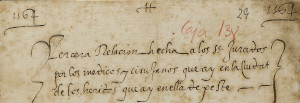 1564 H 29 1564
Caja 132
Tercera Relacion hecha a los ss.es Jurados
por los medicos y cirujanos que ay en la ciudat
de los heridos que ay en ella de peste